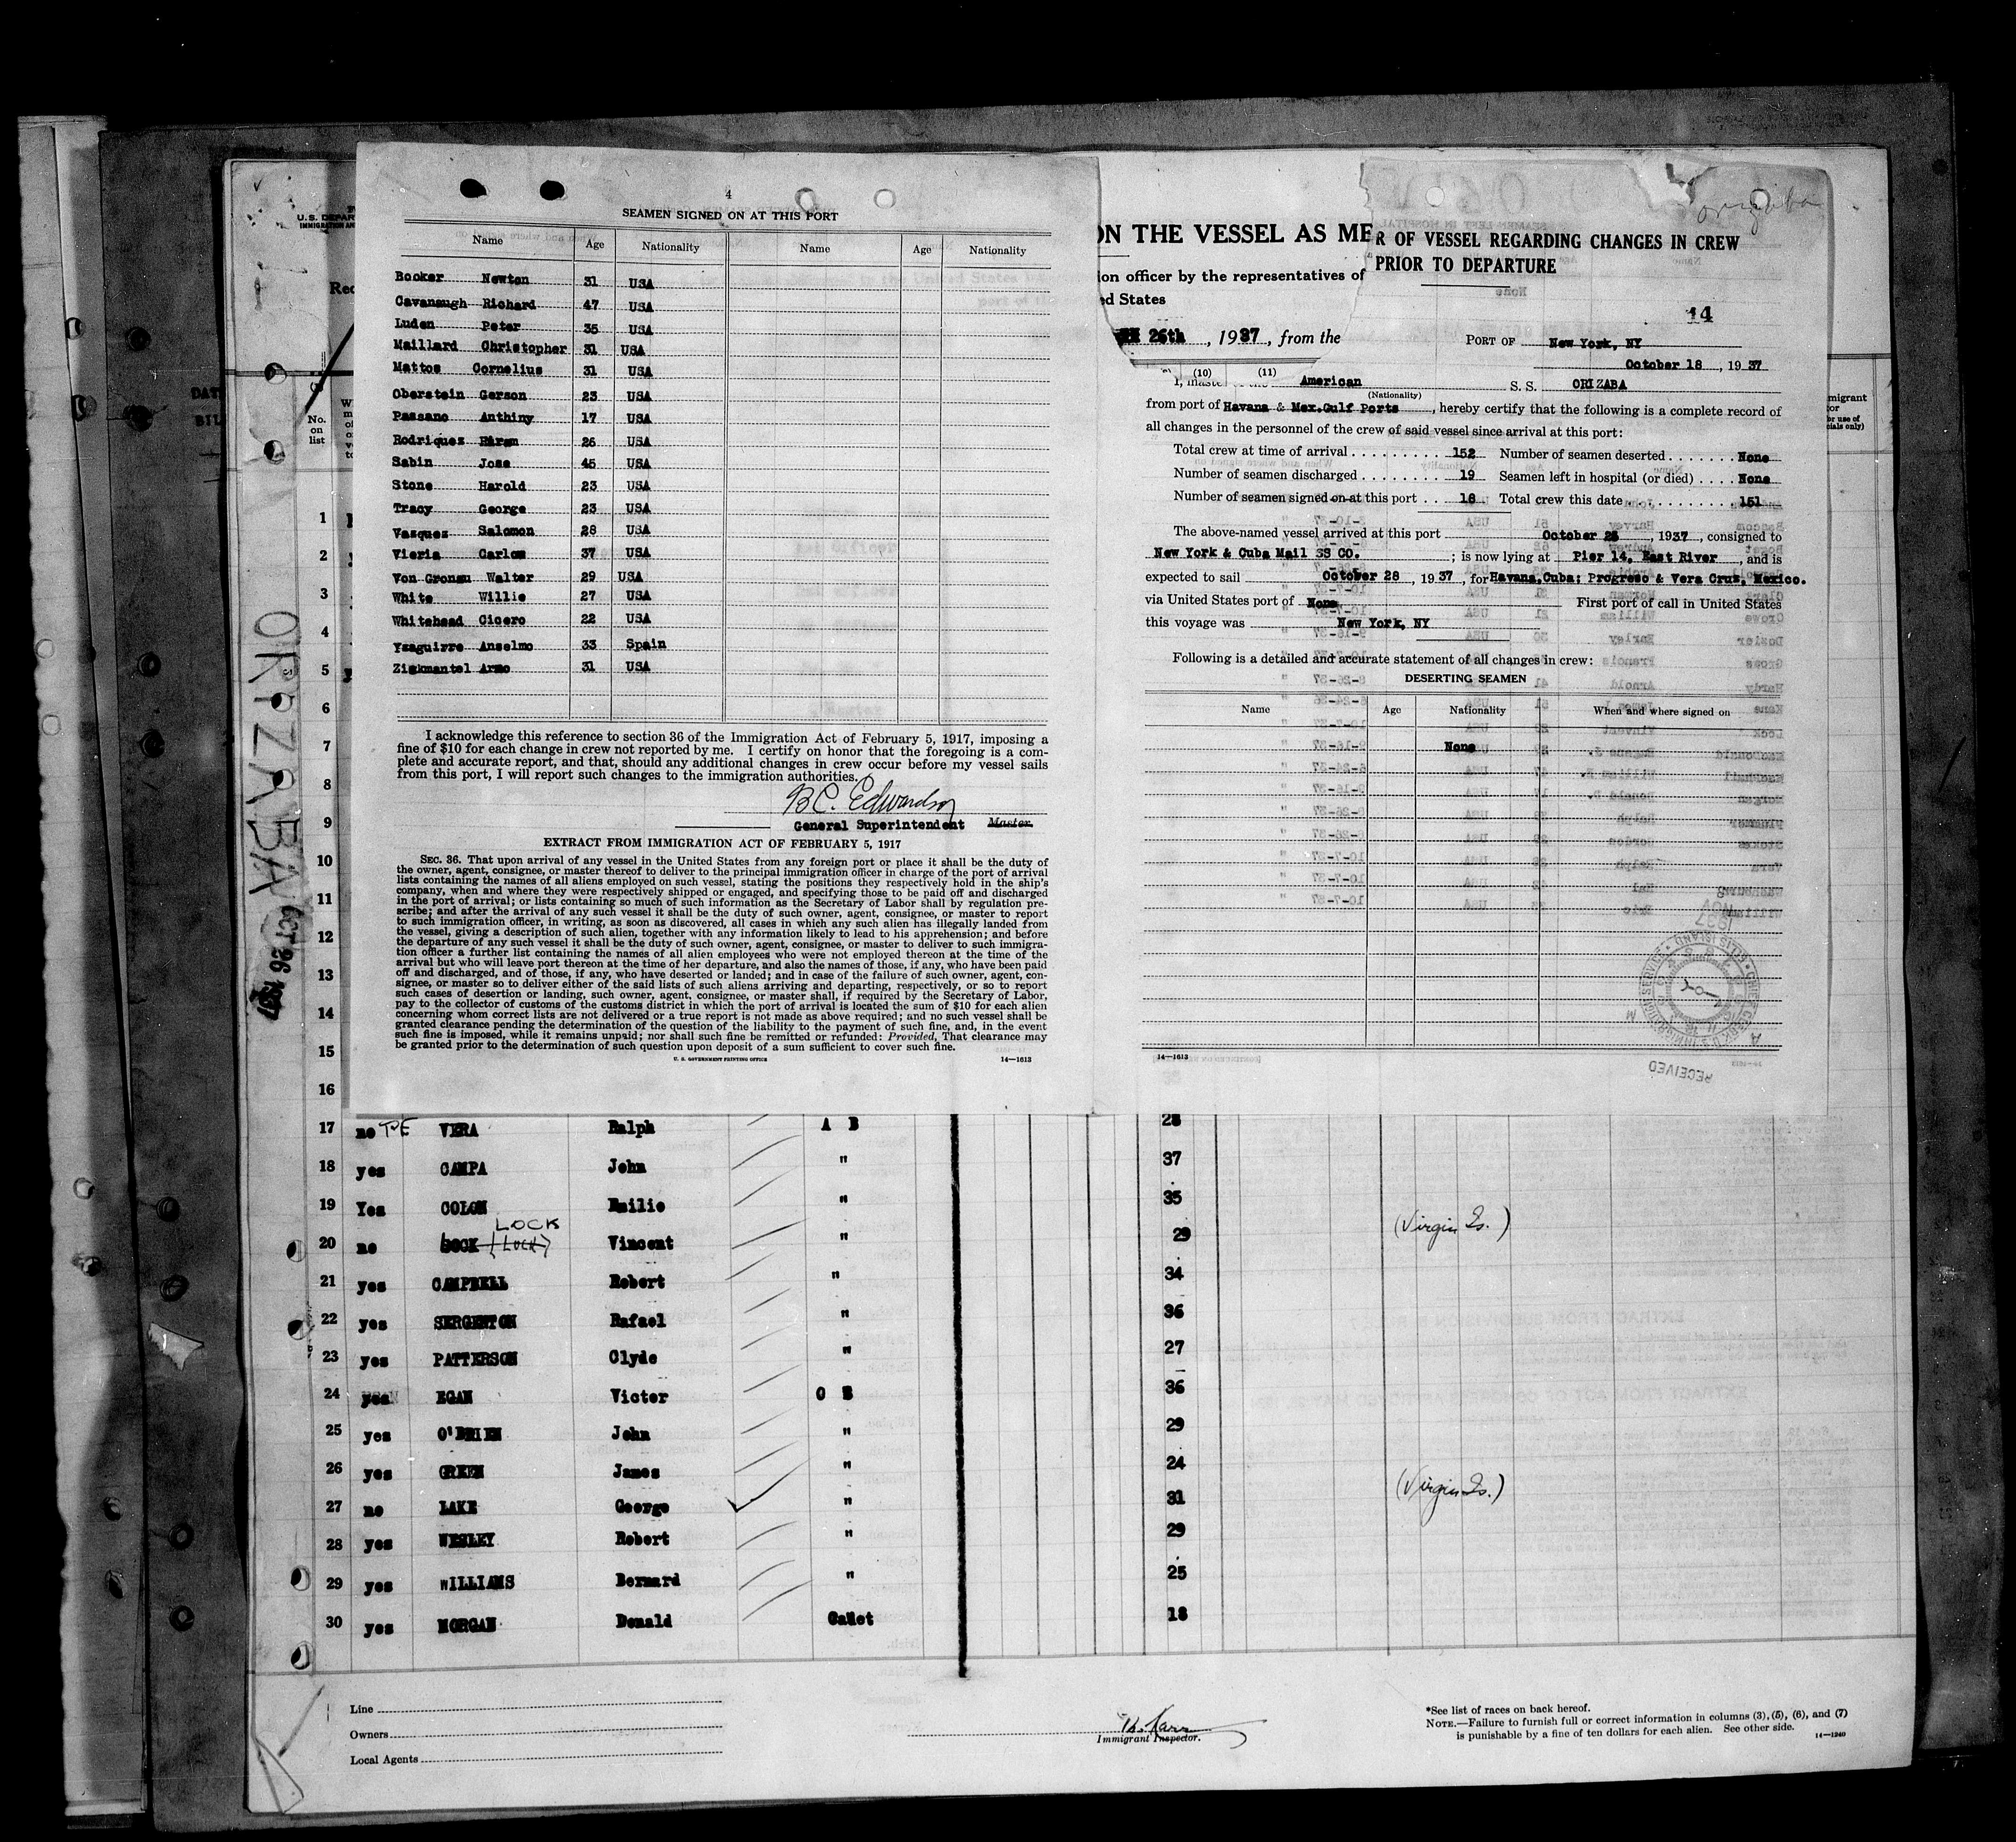 4
SEAMEN SIGNED ON AT THIS PORT
Name Age Nationality Name Age Nationality
Booker Newton 31 USA
Cavanaugh Richard 47 USA
Luden Peter 35 USA
Maillard Christopher 31 USA
Mattos Cornelius 31 USA
Oberstein Gerson 23 USA
Passano Anthiny 17 USA
Rodriquez Hiram 26 USA
Sabin Jose 45 USA
Stone Harold 23 USA
Tracy George 23 USA
Vazquez Salomon 28 USA
Vieria Carlos 37 USA
Von Gronau Walter 29 USA
White Willie 27 USA
Whitehead Cicero 22 USA
Yzaguirre Anselmo 33 Spain
Zigkmantel Arno 31 USA
I acknowledge this reference to section 36 of the Immigration Act of February 5, 1917, imposing a
fine of $10 for each change in crew not reported by me. I certify on honor that the foregoing is a com-
plete and accurate report, and that, should any additional changes in crew occur before my vessel sails
from this port, I will report such changes to the immigration authorities.
B C. Edwardson
General Superintendent Master.
EXTRACT FROM IMMIGRATION ACT OF FEBRUARY 5, 1917
SEC. 36. That upon arrival of any vessel in the United States from any foreign port or place it shall be the duty of
the owner, agent, consignee, or master thereof to deliver to the principal immigration officer in charge of the port of arrival
lists containing the names of all aliens employed on such vessel, stating the positions they respectively hold in the ship's
company, when and where they were respectively shipped or engaged, and specifying those to be paid off and discharged
in the port of arrival; or lists containing so much of such information as the Secretary of Labor shall by regulation pre-
scribe; and after the arrival of any such vessel it shall be the duty of such owner, agent, consignee, or master to report
to such immigration officer, in writing, as soon as discovered, all cases in which any such alien has illegally landed from
the vessel, giving a description of such alien, together with any information likely to lead to his apprehension; and before
the departure of any such vessel it shall be the duty of such owner, agent, consignee, or master to deliver to such immigra-
tion officer a further list containing the names of all alien employees who were not employed thereon at the time of the
arrival but who will leave port thereon at the time of her departure, and also the names of those, if any, who have been paid
off and discharged, and of those, if any, who have deserted or landed; and in case of the failure of such owner, agent, con-
signee, or master so to deliver either of the said lists of such aliens arriving and departing, respectively, or so to report
such cases of desertion or landing, such owner, agent, consignee, or master shall, if required by the Secretary of Labor,
pay to the collector of customs of the customs district in which the port of arrival is located the sum of $10 for each alien
concerning whom correct lists are not delivered or a true report is not made as above required; and no such vessel shall be
granted clearance pending the determination of the question of the liability to the payment of such fine, and, in the event
such fine is imposed, while it remains unpaid; nor shall such fine be remitted or refunded: Provided, That clearance may
be granted prior to the determination of such question upon deposit of a sum sufficient to cover such fine.
U. S. GOVERNMENT PRINTING OFFICE 14—1613
ON THE VESSEL AS ME
ion officer by the representatives of
ed States
26th, 1937, from the
(10) (11)
Orizaba
R OF VESSEL REGARDING CHANGES IN CREW
PRIOR TO DEPARTURE
14
PORT OF New York, NY
October 18, 1937
I, master American S. S. ORIZABA
(Nationality)
from port of Havana & Mex.Gulf Ports, hereby certify that the following is a complete record of
all changes in the personnel of the crew of said vessel since arrival at this port:
Total crew at time of arrival 152 Number of seamen deserted None
Number of seamen discharged 19 Seamen left in hospital (or died) None
Number of seamen signed on at this port 18 Total crew this date 151
The above-named vessel arrived at this port October 26, 1937, consigned to
New York & Cuba Mail SS CO. ; is now lying at Pier 14, East River, and is
expected to sail October 28, 1937, for Havana,Cuba; Progreso & Vera Cruz, Mexico.
via United States port of None First port of call in United States
this voyage was New York, NY
Following is a detailed and accurate statement of all changes in crew:
DESERTING SEAMEN
Name Age Nationality When and where signed on
None
14—1613
RECEIVED
U.S. DEPAR
IMMIGRATION AN
Rec
No. on list
migrant
or
cials only)
ORIZABA OCT 26 1937
1
2
3
4
5
6
7
8
9
10
11
12
13
14
15
16
17 no VERA Ralph A B 28
18 yes CAMPA John " 37
19 Yes COLON Emilio " 35
LOCK
20 no (LOCK) Vincent " 29 (Virgin Is.)
21 yes CAMPBELL Robert " 34
22 yes SERGENTON Rafael " 36
23 yes PATTERSON Clyde " 27
24 yes EGAN Victor O S 36
25 yes O'BRIEN John " 29
26 yes GREEN James " 24
27 no LAKE George " 31 (Virgin Is.)
28 yes WESLEY Robert " 29
29 yes WILLIAMS Bernard " 25
30 yes MORGAN Donald Cadet 18
Line
Owners
Local Agents
Immigrant Inspector.
*See list of races on back hereof.
NOTE.—Failure to furnish full or correct information in columns (3), (5), (6), and (7)
is punishable by a fine of ten dollars for each alien. See other side.
14—1240